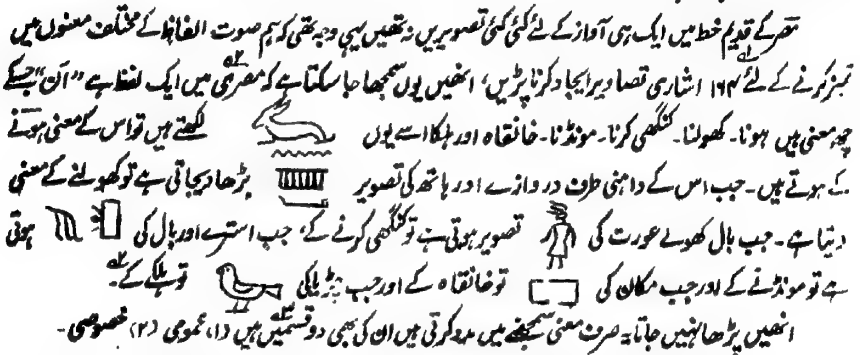 مصر کے قدیم خط میں ایک ہی آواز کے لئے کئی کئی تصویریں نہ تھیں یہی وجہ تھی کہ ہم صوت الفاظ کے مختلف معنوں میں
تمیز کرنے کے لئے ۱۶۴ اشاری تصاویر ایجاد کرنا پڑیں، انھیں یوں سمجھا جا سکتا ہے کہ مصری میں ایک لفظ ہے "اُن" جسکے
چھ معنی ہیں ہونا۔ کھولنا۔ کنگھی کرنا۔ مونڈنا۔ خانقاہ اور ہلکا اسے یوں لکھتے ہیں تو اس کے معنی ہونے
کے ہوتے ہیں۔ جب اس کے داہنی طرف دروازے اور ہاتھ کی تصویر بڑھا دیجاتی ہے تو کھولنے کے معنی
دیتا ہے۔ جب بال کھولے عورت کی تصویر ہوتی ہے تو کنگھی کرنے کے، جب استرے اور بال کی ہوتی
ہے تو مونڈنے کے اور جب مکان کی تو خانقاہ کے اور جب چڑیا کی تو ہلکے کے۔
انھیں پڑھا نہیں جاتا یہ صرف معنی سمجھنے میں مدد کرتی ہیں ان کی بھی دو قسمیں ہیں (۱) عمومی (۲) خصوصی۔